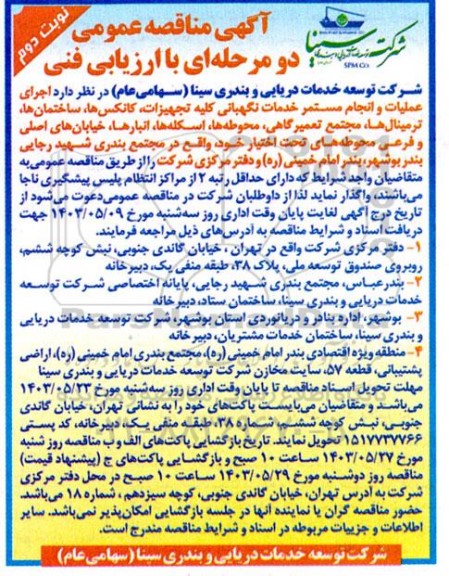 نوبت دوم
آگهی مناقصه عمومی
دو مرحله‌ای با ارزیابی فنی
شرکت سینا
SPM Co
شرکت توسعه خدمات دریایی و بندری سینا (سهامی‌عام) در نظر دارد اجرای
عملیات و انجام مستمر خدمات نگهبانی کلیه تجهیزات، کانکس‌ها، ساختمان‌ها،
ترمینال‌ها، مجتمع تعمیرگاهی، محوطه‌ها، اسکله‌ها، انبارها، خیابان‌های اصلی
و فرعی محوطه‌های تحت اختیار خود، واقع در مجتمع بندری شهید رجایی
بندر بوشهر، بندر امام خمینی (ره) و دفتر مرکزی شرکت را از طریق مناقصه عمومی به
متقاضیان واجد شرایط که دارای حداقل رتبه ۲ از مراکز انتظام پلیس پیشگیری ناجا
می‌باشند، واگذار نماید لذا از داوطلبان شرکت در مناقصه عمومی دعوت می‌شود از
تاریخ درج آگهی لغایت پایان وقت اداری روز سه‌شنبه مورخ ۱۴۰۳/۰۵/۰۹ جهت
دریافت اسناد و شرایط مناقصه به آدرس‌های ذیل مراجعه فرمایند.
۱- دفتر مرکزی شرکت واقع در تهران ، خیابان گاندی جنوبی، نبش کوچه ششم،
روبروی صندوق توسعه ملی، پلاک ۳۸، طبقه منفی یک، دبیرخانه
۲- بندرعباس، مجتمع بندری شهید رجایی، پایانه اختصاصی شرکت توسعه
خدمات دریایی و بندری سینا، ساختمان ستاد، دبیرخانه
۳- بوشهر، اداره بنادر و دریانوردی استان بوشهر، شرکت توسعه خدمات دریایی
و بندری سینا، ساختمان خدمات مشتریان، دبیرخانه
۴- منطقه ویژه اقتصادی بندر امام خمینی (ره)، مجتمع بندری امام خمینی (ره)، اراضی
پشتیبانی، قطعه ۵۷، سایت مخازن شرکت توسعه خدمات دریایی و بندری سینا
مهلت تحویل اسناد مناقصه تا پایان وقت اداری روز سه‌شنبه مورخ ۱۴۰۳/۰۵/۲۳
می‌باشد و متقاضیان می‌بایست پاکت‌های خود را به نشانی تهران، خیابان گاندی
جنوبی، نبش کوچه ششم، پلاک ۳۸، طبقه منفی یک، دبیرخانه، کد پستی
۱۵۱۷۷۳۷۷۶۶ تحویل نمایند. تاریخ بازگشایی پاکت‌های الف و ب مناقصه روز شنبه
مورخ ۱۴۰۳/۰۵/۲۷ ساعت ۱۰ صبح و بازگشایی پاکت‌های ج (پیشنهاد قیمت)
مناقصه روز دوشنبه مورخ ۱۴۰۳/۰۵/۲۹ ساعت ۱۰ صبح در محل دفتر مرکزی
شرکت به آدرس تهران، خیابان گاندی جنوبی، کوچه سیزدهم ، شماره ۱۸ می‌باشد.
حضور مناقصه گران یا نماینده آنها در جلسه بازگشایی امکان‌پذیر نمی‌باشد. سایر
اطلاعات و جزییات مربوطه در اسناد و شرایط مناقصه مندرج است.
شرکت توسعه خدمات دریایی و بندری سینا (سهامی‌عام)